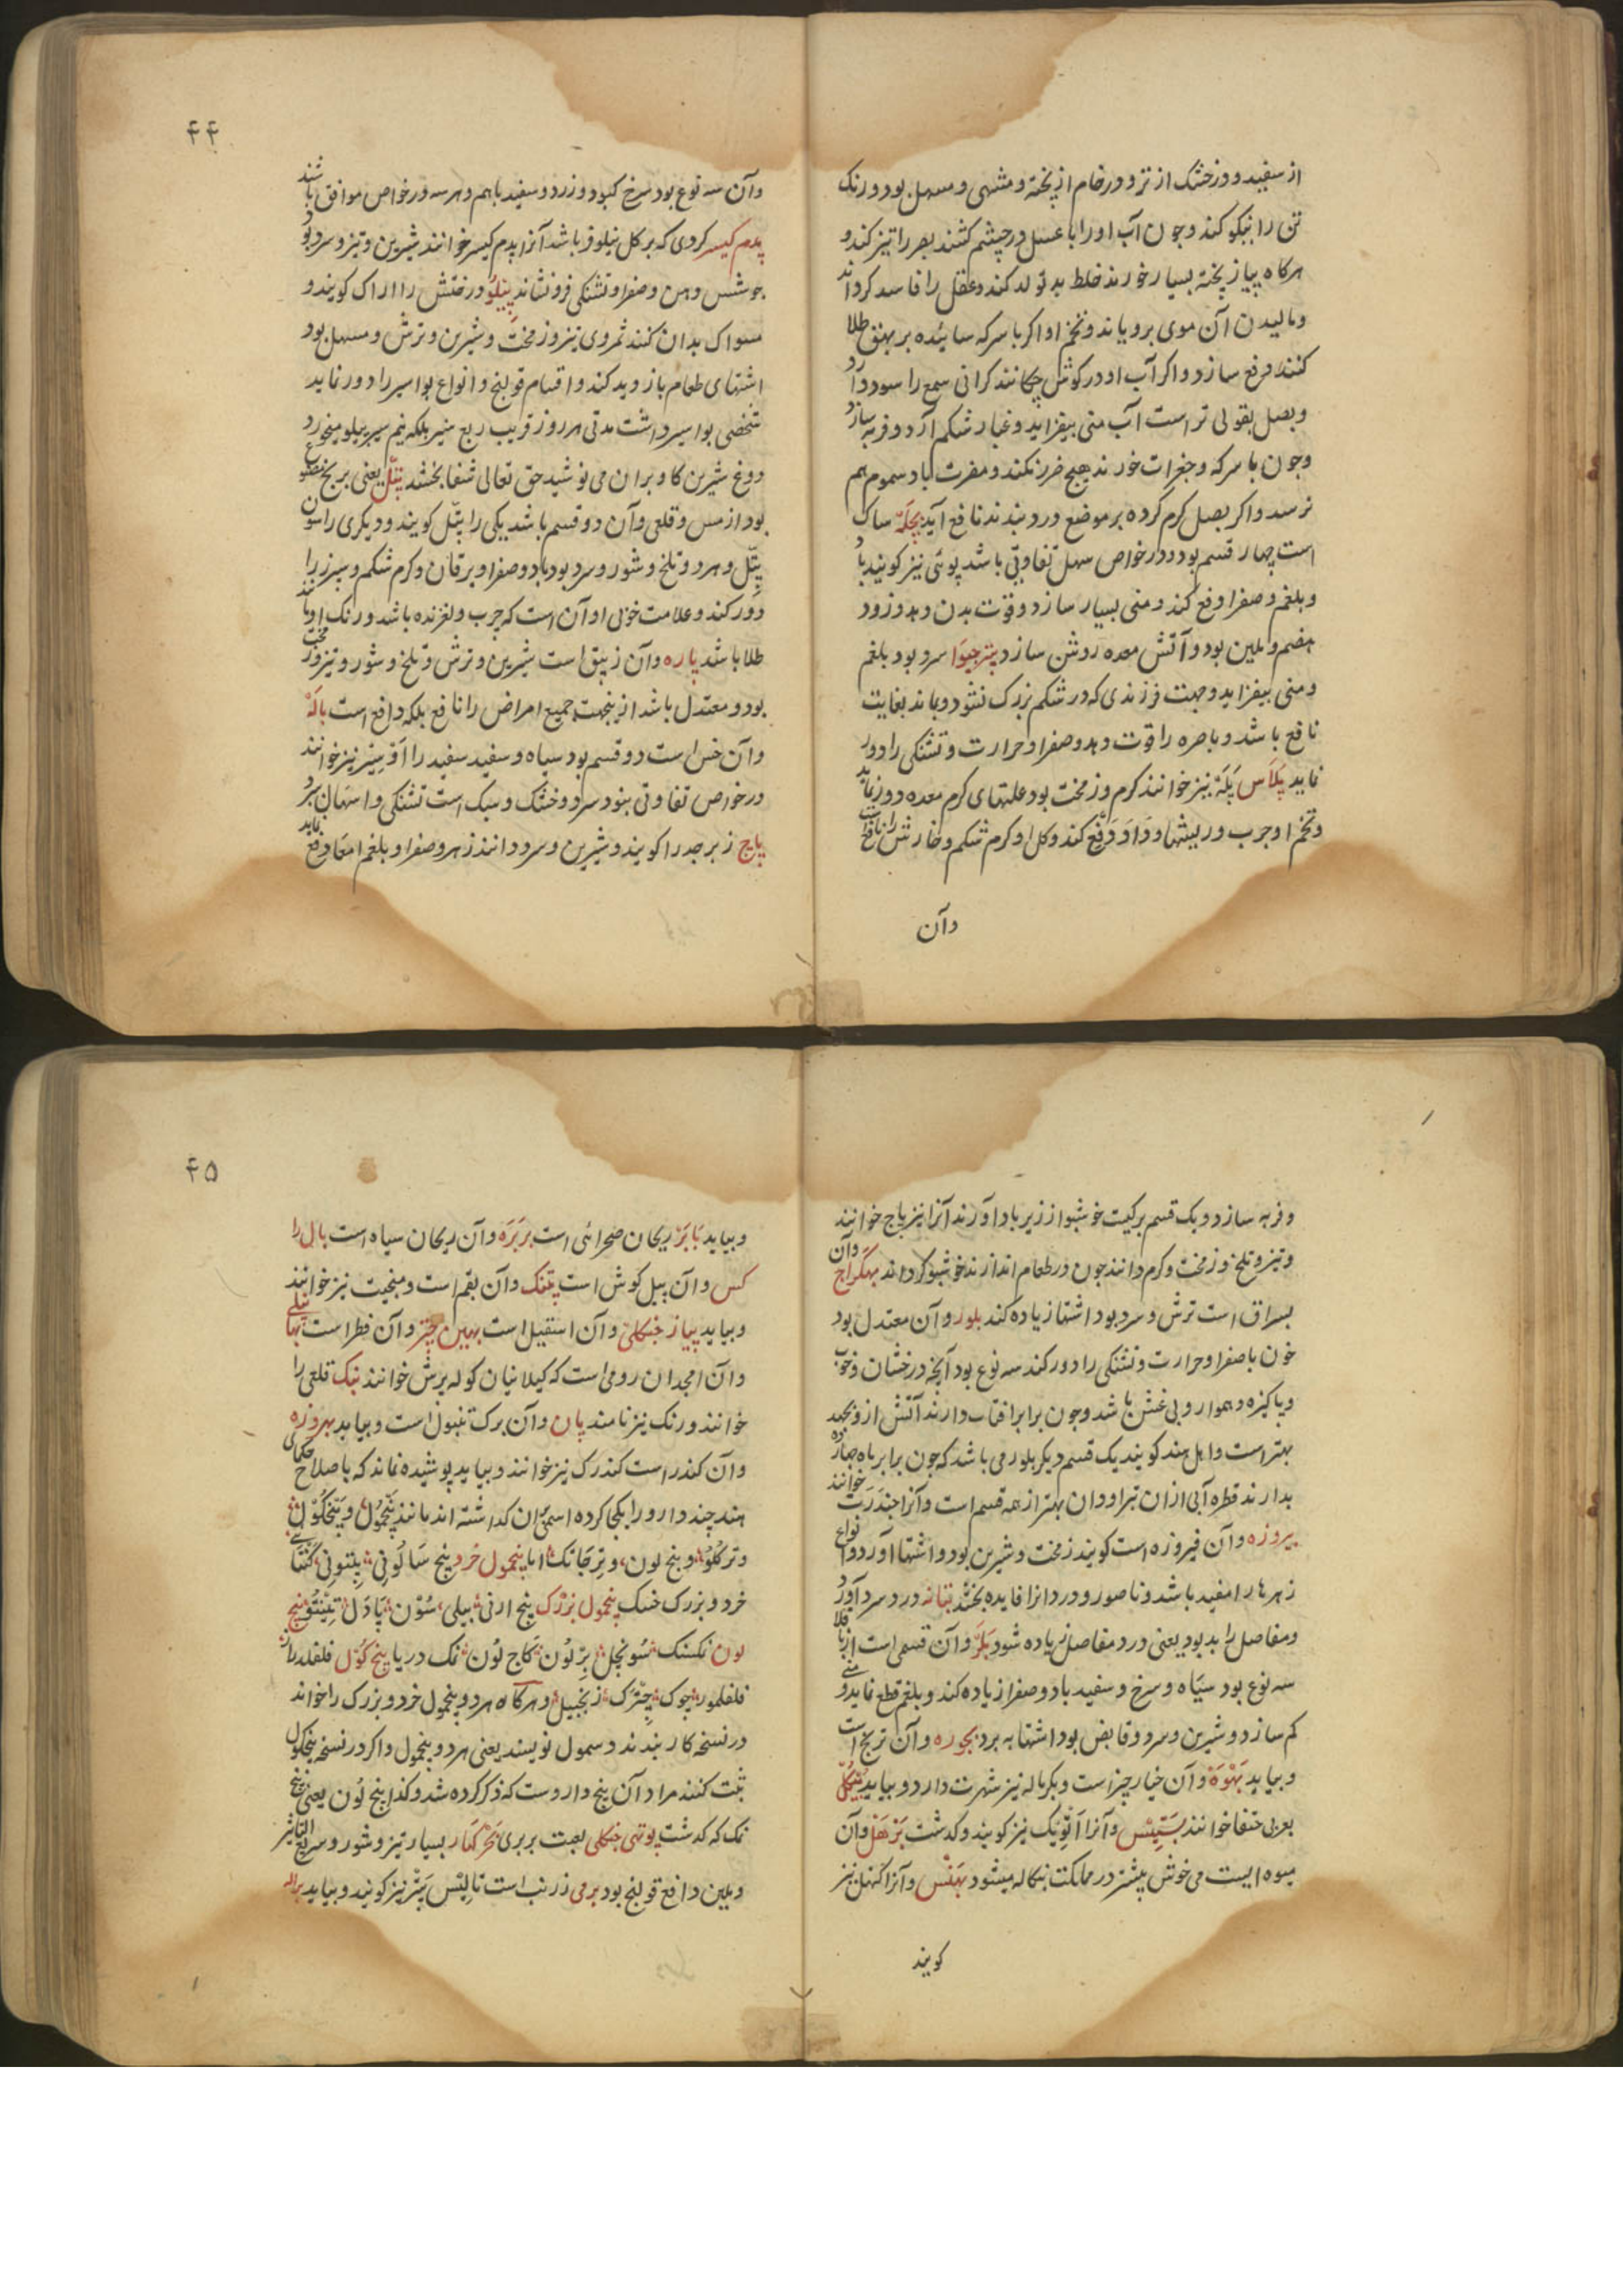 از سفید و در خشک از تر و در خام از پخته و مشهی و مسهل بود و رنک
تن را نیکو کند و چون آب او را با عسل در چشم کشند بصر را تیز کند و
هرکاه پیاز پخته بسیار خورند خلط بد تولد کند و عقل را فاسد کرداند
و مالیدن آن موی برویاند و تخم او اکر با سرکه سائیده بر بهق طلا
کنند دفع سازد و اکر آب او در کوش چکانند کرانی سمع را سود دارد
و بصل بقولی تر است آب منی بیفزاید و غبار شکم آرد و فربه سازد
و چون با سرکه و جغرات خورند هیچ ضرر نکند و مضرت باد سموم هم
نرسد و اکر بصل کرم کرده بر موضع درد بندند نافع آید بجله ساک
است چهار قسم بود و در خواص سهل تفاوتی باشد پوئی نیز کویند باد
و بلغم و صفرا دفع کند و منی بسیار سازد و قوت بدن دهد و زود
هضم و ملین بود و آتش معده روشن سازد پترجیوا سرد بود بلغم
و منی بیفزاید و جهت فرزندی که در شکم بزرک نشود و بماند بغایت
نافع باشد و باصره را قوت دهد و صفرا و حرارت و تشنکی را دور
نماید پلاس پله نیز خوانند کرم و زمخت بود علتهای کرم معده دور نماید
و تخم او جرب و ریشها و داد و دفع کند و کل او کرم شکم و خارش را نافع است
وآن
۴۴
وآن سه نوع بود سرخ کبود و زرد و سفید باهم و هر سه در خواص موافق باشند
پدم کیسر کردی که بر کل نیلوفر باشد آنرا پدم کیسر خوانند شیرین و تیز و سرد بود
جوشش دهن و صفرا و تشنکی فرو نشاند پیلو درختش را اراک کویند و
مسواک بدان کنند ثمر وی تیز و زمخت و شیرین و ترش و مسهل بود
اشتهای طعام بازدید کند و اقسام قولنج و انواع بواسیر را دور نماید
شخصی بواسیر داشت مدتی هر روز قریب ربع سیر بلکه نیم سیر پیلو میخورد
دوغ شیرین کاو بران می نوشید حق تعالی شفا بخشد پتل یعنی برنج مضروب
بود از مس و قلعی و آن دو قسم باشد یکی را پتل کویند و دیکری را سون
پتل و هر دو تلخ و شور و سرد بود باد و صفرا و یرقان و کرم شکم و سپرز را
دور کند و علامت خوبی او آن است که چرب و لغزنده باشد و رنک او مانند
طلا باشد پاره وآن زیبق است شیرین و ترش و تلخ و شور و تیز و زمخت
بود و معتدل باشد ازینجهت جمیع امراض را نافع بلکه دافع است باله
وآن خس است دو قسم بود سیاه و سفید سفید را نیز خوانند
در خواص تفاوتی بنود سرد و خشک و سبک است تشنکی و اسهال برد
پاچ زبرجد را کویند و شیرین و سرد دانند زهر و صفرا و بلغم امعا دفع نماید
و فربه سازد و یک قسم برکیست خوشبو از زیرباد آورند آنرا نیز پاچ خوانند
و تیز و تلخ و زمخت و کرم دانند چون در طعام اندازند خوشبو کرداند بهکراج وآن
بسراق است ترش و سرد بود اشتها زیاده کند بلور وآن معتدل بود
خون با صفرا و حرارت و تشنکی را دور کند سه نوع بود آنچه درخشان و خوب
و پاکیزه و هموار و بی غش باشد و چون برابر افتاب دارند آتش ازو بجهد
بهتر است و اهل هند کویند یک قسم دیکر بلور می باشد که چون برابر ماه چهارده
بدارند قطره آبی ازان تراود وان بهتر از همه قسم است و آنرا چندرکت خوانند
پیروزه وآن فیروزه است کویند زمخت و شیرین بود و اشتها آورد و انواع
زهرها را مفید باشد و ناصور و درد انرا فایده بخشد بتانه درد سر آورد
و مفاصل را بد بود یعنی درد مفاصل زیاده شود بکر وآن قسمی است از باقلا
سه نوع بود سیاه و سرخ و سفید باد و صفرا زیاده کند و بلغم قطع نماید و منی
کم سازد و شیرین و سرد و قابض بود اشتها به برد بجوره وآن ترنج است
و بیاید بهوه وآن خیارچنبر است و بکرماله نیز شهرت دارد و بیاید
بعربی خوانند بستیس وآنرا اتیک نیز کویند و کدشت بزهل وآن
میوه ایست می خوش بیشتر در مملکت بنکاله میشود بهنس وآنرا کتهل نیز
کویند
۴۵
و بیاید بابر ریحان صحرائی است بربره وآن ریحان سیاه است بال را
کس وآن پیل کوش است پتنک وآن بقم است و منجیت نیز خوانند
و بیاید پیاز جنکلی وآن اسقیل است بهین چتر وآن فطر است
وآن امجدان رومی است که کیلانیان کوله پرش خوانند بنک قلعی را
خوانند و رنک نیز نامند پان وآن برک تنبول است و بیاید بهروزه
وآن کندر است کندرک نیز خوانند و بیاید پوشیده نماند که باصلاح حکمای
هند چند دارو را یکجا کرده اسمی بران کداشته اند مانند پنجمول و پنجکول
و ترکلو و پنج لون و ترجاتک اما پنجمول خرد بیخ سالونی پتونی
خرد و بزرک خسک پنجمول بزرک بیخ ارنی بیلی سون پادل پنج
لون نمکسنک سونچل بر لون کاچ لون نمک دریا پنج کول فلفلدراز
فلفلمور چوک چترک زنجبیل و هرکاه هر دو پنجمول خرد و بزرک را خواند
در نسخه کار بندند دسمول نویسند یعنی هر دو پنجمول و اکر در نسخه پنجکول
ثبت کنند مراد آن پنج داروست که ذکر کرده شد و کذا پنج لون یعنی پنج
نمک که کدشت پوتهی جنکلی لعبت بربری بسیار تیز و شور و سریع التاثیر
و ملین دافع قولنج بود برمی زرنب است تالیس پتر نیز کویند و بیاید براله